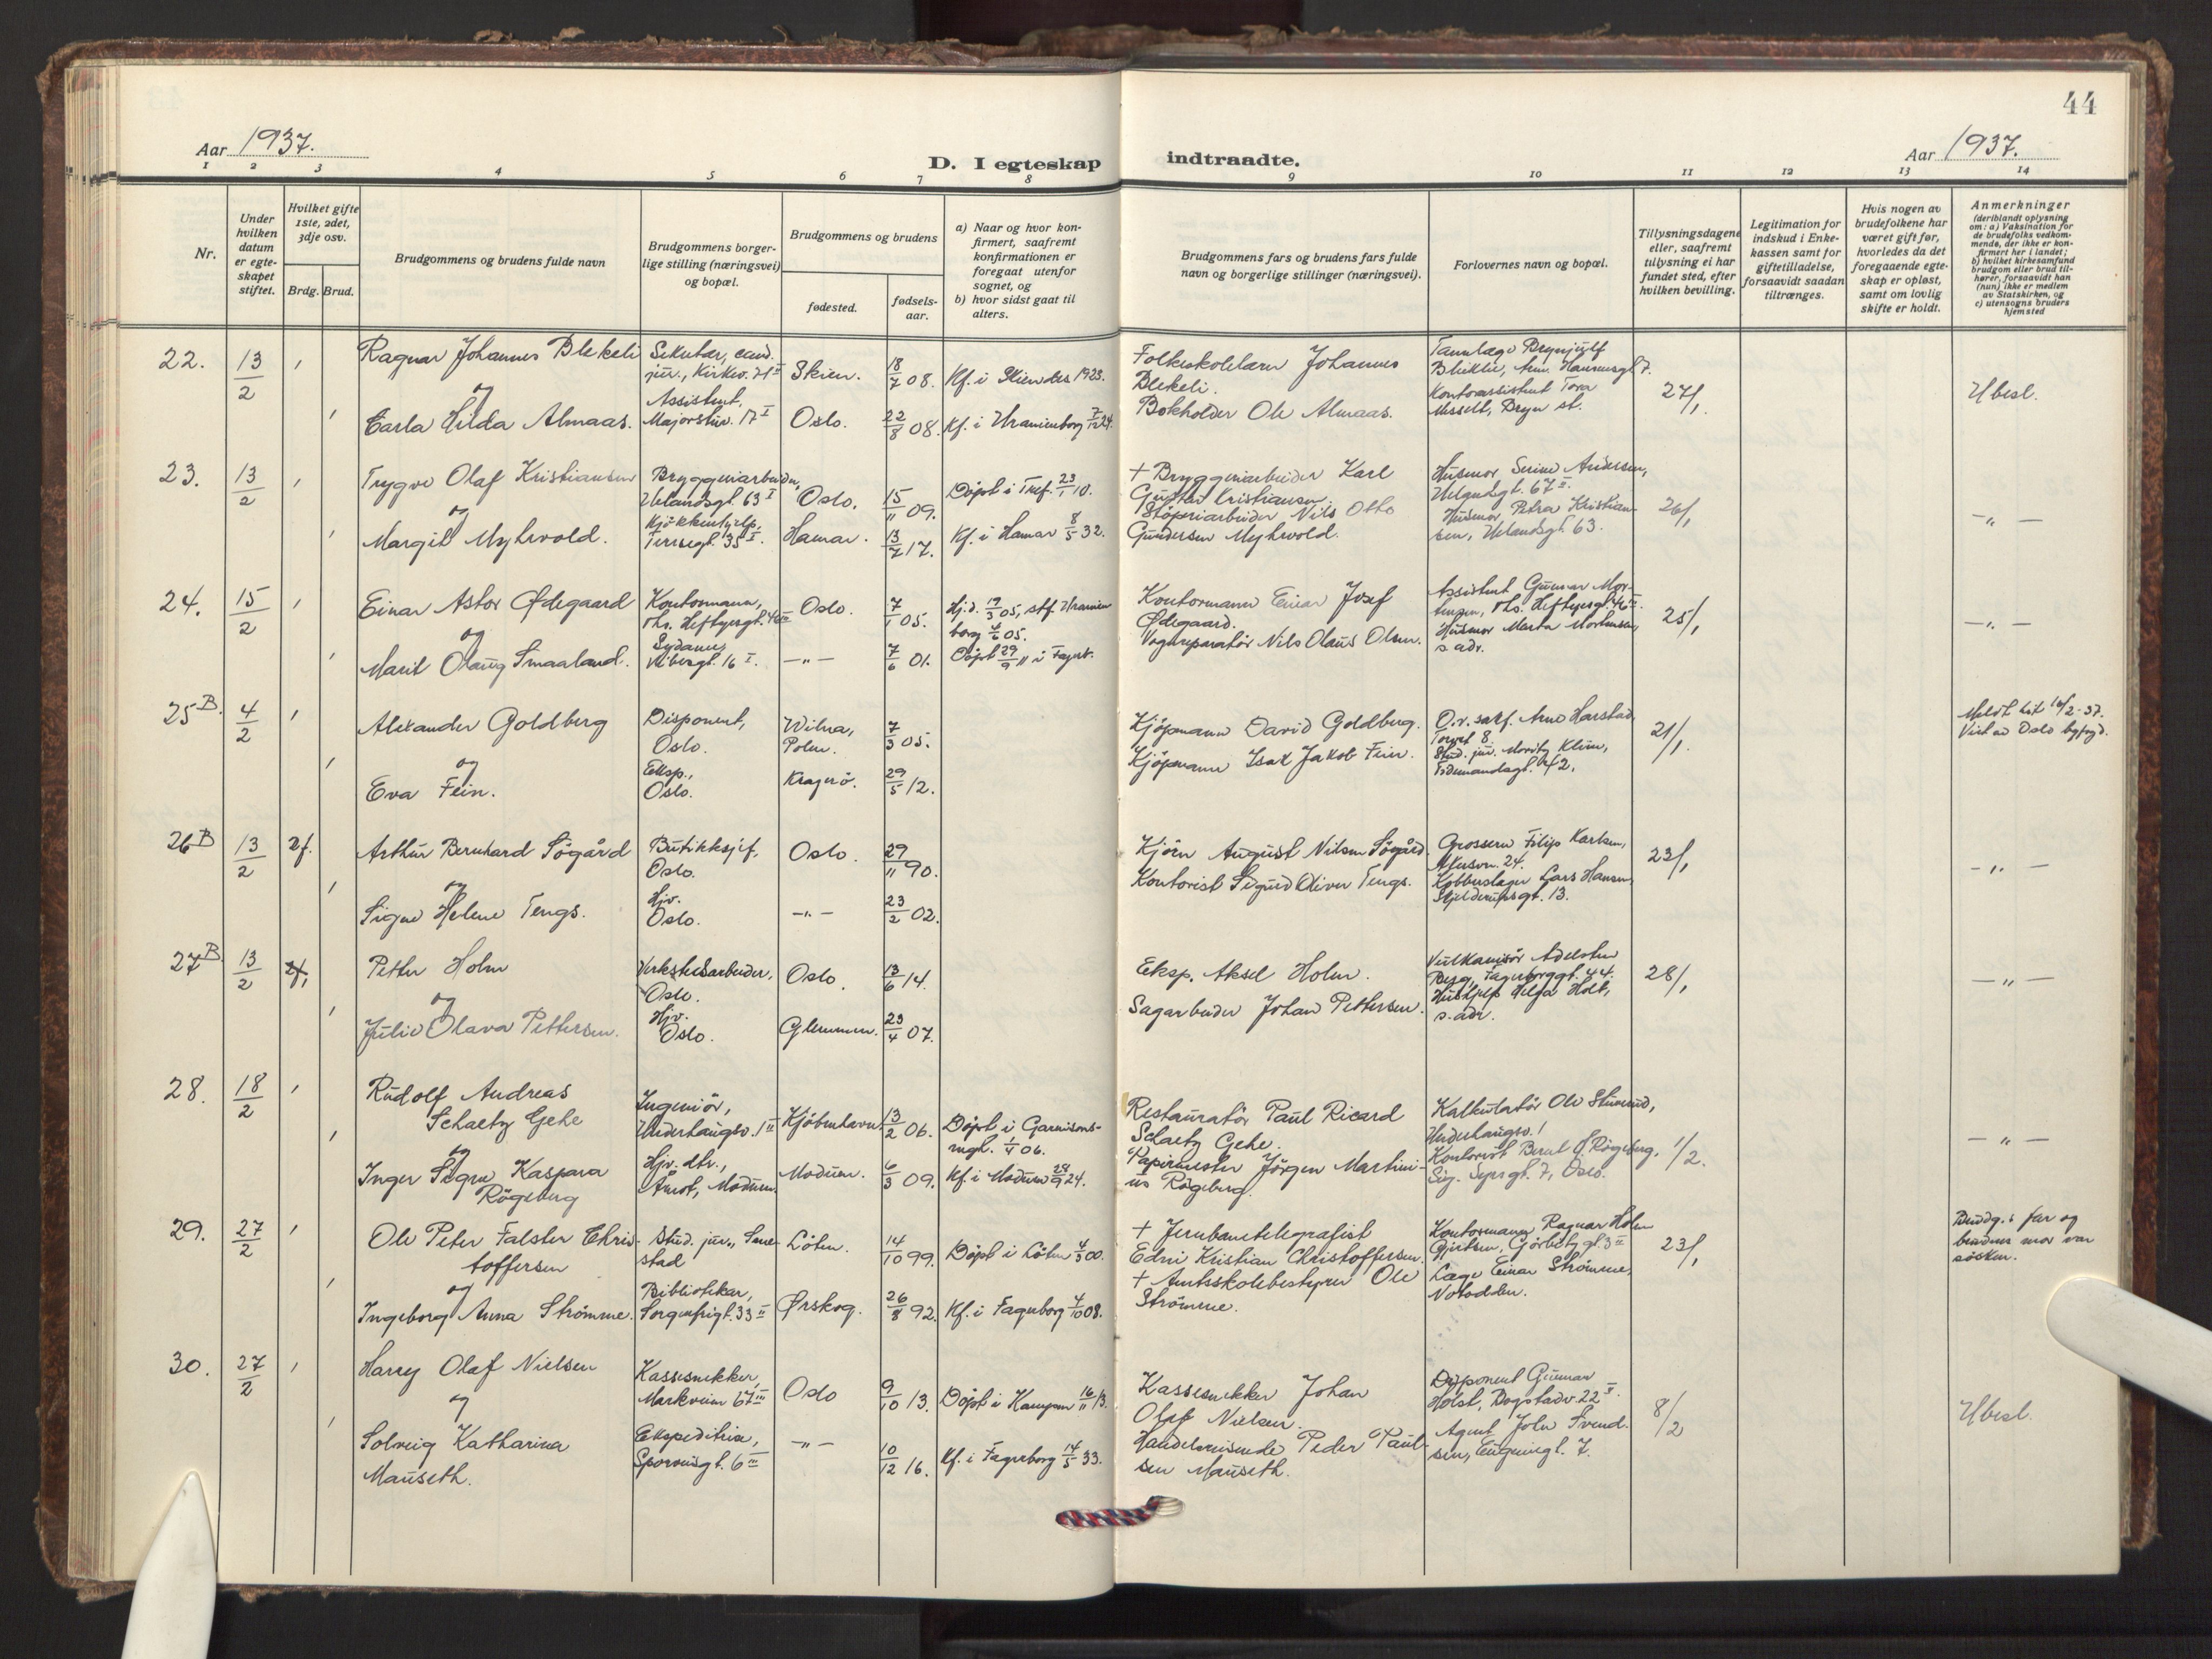 44
Aar 1937.
D. I egteskap indtraadte.
Aar 1937.
1 2 3 4 5 6 7 8 9 10 11 12 13 14
Nr.
Under hvilken datum er egteskapet stiftet.
Hvilket gifte 1ste, 2det, 3dje osv.
Brdg. Brud.
Brudgommens og brudens fulde navn
Brudgommens borgerlige stilling (næringsvei) og bopæl.
Brudgommens og brudens
fødested.
fødselsaar.
a) Naar og hvor konfirmert, saafremt konfirmationen er foregaat utenfor sognet, og
b) hvor sidst gaat til alters.
Brudgommens fars og brudens fars fulde navn og borgerlige stillinger (næringsvei).
Forlovernes navn og bopæl.
Tillysningsdagene eller, saafremt tillysning ei har fundet sted, efter hvilken bevilling.
Legitimation for indskud i Enkekassen samt for giftetilladelse, forsaavidt saadan tiltrænges.
Hvis nogen av brudefolkene har været gift før, hvorledes da det foregaaende egteskap er opløst, samt om lovlig skifte er holdt.
Anmerkninger
(deriblandt oplysning om: a) Vaksination for de brudefolks vedkommende, der ikke er konfirmert her i landet; b) hvilket kirkesamfund brudgom eller brud tilhører, forsaavidt han (hun) ikke er medlem av Statskirken, og c) utensogns bruders hjemsted
22. 13/2 1 Ragnar Johannes Blekeli
Sekretær, cand. jur., Kirkev. 71 II
Skien. 18/7 08. Kf. i Skien 1923.
Folkeskolelærer Johannes Blekeli.
27/1. Ubesl.
og
1 Carla Hilda Almaas.
Assistent, Majorstuv. 17 I
Oslo. 22/8 08. Kf. i Uranienborg
Bokholder Ole Almaas.
Kontorassistent Tora Bryn st.
23. 13/2 1 Trygve Olaf Kristiansen
Bryggeriarbeider, Uelandsgt. 63 I
Oslo. 15/11 09. Døpt i Tref. 23/1 10.
+ Bryggeriarbeider Karl Gustav Kristiansen.
Husmor Serine Andersen, Uelandsgt. 67 II.
26/1 -"-
og
1 Margit Myhrvold.
Kjøkkenhjelp,
Hamar. 13/7 17. Kf. i Hamar 8/5 32.
Støperiarbeider Nils Otto Gundersen Myhrvold.
Husmor Petra Kristiansen, Uelandsgt. 63.
24. 15/2 1 Einar Astor Ødegaard
Kontormann, Th. Heftyesgt. 46 III
Oslo. 7/1 05. Hj.d. 19/3 05, stf. Uranienborg 4/6 05.
Kontormann Einar Josef Ødegaard.
Assistent Gunnar Mortensen, Th. Heftyesgt. 46 II.
25/1 -"-
og
1 Marit Olaug Smaaland.
Sydame, Vibesgt. 16 I.
-"- 7/6 01. Døpt 29/9 11 i Fagerb.
Vognreparatør Nils Olaus Olsen.
Husmor Marta Mortensen, s. adr.
25 B. 4/2 1 Alexander Goldberg
Disponent, Oslo.
Wilna, Polen. 7/3 05.
Kjøpmann David Goldberg.
O.r. sakf. Arne Harstad, Torvet 8.
21/1. Meldt hit 16/2-37. Viet av Oslo byfogd.
og
1 Eva Fein.
Eksp., Oslo.
Kragerø. 29/5 12.
Kjøpmann Isak Jakob Fein.
Stud. jur. Moritz Klein, Tidemandsgt. 42.
26 B 13/2 2g. Arthur Bernhard Søgård
Butikksjef, Oslo.
Oslo. 29/11 90.
Kjørn August Nilsen Søgård
Grosserer Filip Karlsen, Akersvn. 24.
23/1 -"-
og
1 Signe Helene Tengs.
Hjv. Oslo.
-"- 23/2 02.
Kontorist Sigurd Oliver Tengs.
Kobberslager Lars Hansen, Skjelderupsgt. 13.
27 B. 13/2 Petter Holm
Verkstedsarbeider, Oslo.
Oslo. 13/6 14.
Eksp. Aksel Holm.
Vulkanisør Adelsten Berg, Fagerborggt. 44.
28/1 -"-
og
1 Julie Olava Pettersen.
Hjv. Oslo.
Glemmen. 23/4 07.
Sagarbeider Johan Pettersen.
Hushjelp Helga Holt, s. adr.
28. 18/2 1 Rudolf Andreas Schaetz Gehe
Ingeniør, Underhaugsv. 1 II
Kjøbenhavn 13/2 06. Døpt i Garnisonsmgh. 1/4 06.
Restauratør Paul Ricard Schaetz Gehe.
Kalkulatør Ole Stuverud, Underhaugsv. 1
1/2. -"-
og
1 Inger Signe Kaspara Røgeberg
Hjv. dtr., Åmot, Modum.
Modum. 6/3 09. Kf. i Modum 28/9 24.
Papirmester Jørgen Martinius Røgeberg.
Kontorist Bernt J. Røgeberg, Sig. Syrsgt. 7, Oslo.
29. 27/2 1 Ole Peter Falster Christoffersen
Stud. jur., Smestad
Løten. 14/10 99. Døpt i Løten 4/3 00.
+ Jernbanetelegrafist Edvin Kristian Christoffersen.
Kontormann Ragnar Holm Gjertsen, Gjørbitzgt. 3 II
23/1 Brudg.s far og brudens mor var søsken.
og
1 Ingeborg Anna Strømme.
Bibliotekar, Sorgenfrigt. 33 II
Ørskog. 26/8 92. Kf. i Fagerborg 4/10 08.
+ Amtsskolebestyrer Ole Strømme.
Læge Einar Strømme, Notodden.
30. 27/2 1 Harry Olaf Nielsen
Kassesnekker, Markveien 67 III
Oslo 9/10 13. Døpt i Kampen 16/11 13.
Kassesnekker Johan Olaf Nielsen.
Disponent Gunnar Holst, Bogstadv. 22 I.
8/2 Ubesl.
og
1 Solveig Katharina Mauseth.
Ekspeditrise, Sporveisgt. 6 III
-"- 10/12 16. Kf. i Fagerborg 14/5 33.
Handelsreisende Peder Paulsen Mauseth.
Agent John Svendsen, Eugeniesgt. 7.